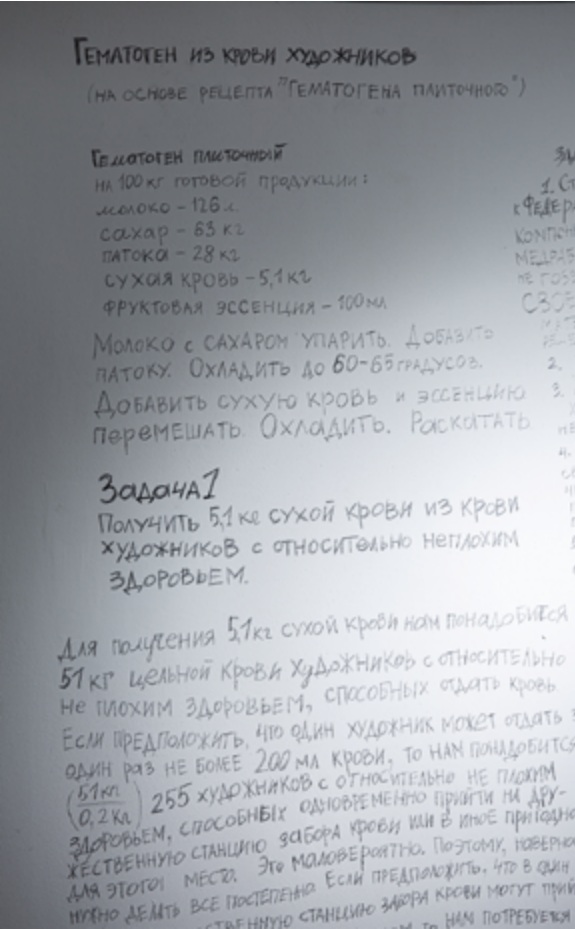 ГЕМАТОГЕН ИЗ КРОВИ ХУДОЖНИКОВ
(НА ОСНОВЕ РЕЦЕПТА "ГЕМАТОГЕНА ПЛИТОЧНОГО")
ГЕМАТОГЕН ПЛИТОЧНЫЙ
НА 100 КГ ГОТОВОЙ ПРОДУКЦИИ:
МОЛОКО – 126 Л.
САХАР – 63 КГ
ПАТОКА – 28 КГ
СУХАЯ КРОВЬ – 5,1 КГ
ФРУКТОВАЯ ЭССЕНЦИЯ – 100 МЛ
МОЛОКО С САХАРОМ УПАРИТЬ. ДОБАВИТЬ
ПАТОКУ. ОХЛАДИТЬ ДО 60-65 ГРАДУСОВ.
ДОБАВИТЬ СУХУЮ КРОВЬ И ЭССЕНЦИЮ
ПЕРЕМЕШАТЬ. ОХЛАДИТЬ. РАСКАТАТЬ
ЗАДАЧА 1
ПОЛУЧИТЬ 5,1 КГ СУХОЙ КРОВИ ИЗ КРОВИ
ХУДОЖНИКОВ С ОТНОСИТЕЛЬНО НЕПЛОХИМ
ЗДОРОВЬЕМ.
ДЛЯ ПОЛУЧЕНИЯ 5,1 КГ СУХОЙ КРОВИ НАМ ПОНАДОБИТСЯ
51 КГ ЦЕЛЬНОЙ КРОВИ ХУДОЖНИКОВ С ОТНОСИТЕЛЬНО
НЕ ПЛОХИМ ЗДОРОВЬЕМ, СПОСОБНЫХ ОТДАТЬ КРОВЬ.
ЕСЛИ ПРЕДПОЛОЖИТЬ, ЧТО ОДИН ХУДОЖНИК МОЖЕТ ОТДАТЬ З
ОДИН РАЗ НЕ БОЛЕЕ 200 МЛ КРОВИ, ТО НАМ ПОНАДОБИТСЯ
(51 КГ / 0,2 КГ) 255 ХУДОЖНИКОВ С ОТНОСИТЕЛЬНО НЕ ПЛОХИМ
ЗДОРОВЬЕМ, СПОСОБНЫХ ОДНОВРЕМЕННО ПРИЙТИ НА ДРУ-
ЖЕСТВЕННУЮ СТАНЦИЮ ЗАБОРА КРОВИ ИЛИ В ИНОЕ ПРИГОДНО
ДЛЯ ЭТОГО МЕСТО. ЭТО МАЛОВЕРОЯТНО. ПОЭТОМУ, НАВЕРНО
НУЖНО ДЕЛАТЬ ВСЕ ПОСТЕПЕННО. ЕСЛИ ПРЕДПОЛОЖИТЬ, ЧТО В ОДИН
СТВЕННУЮ СТАНЦИЮ ЗАБОРА КРОВИ МОГУТ ПРИЙ
НАМ ПОТРЕБУЕТСЯ
1. СТ
ФЕДЕР
КОМПОН
МЕДРАБ
СВОЕ
2.
3.
4.